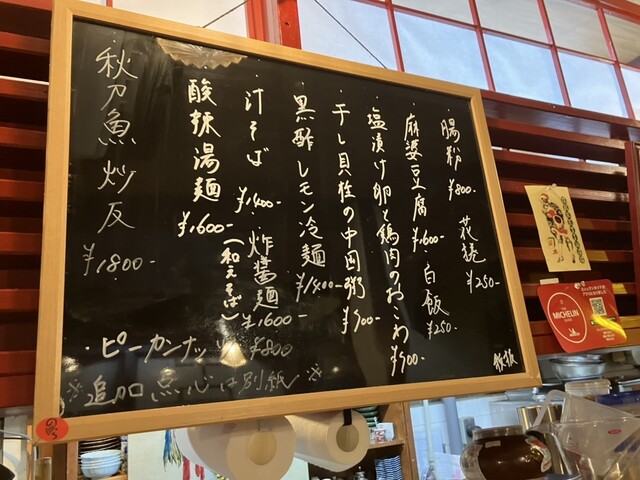 腸粉 ¥800- 花捲 ¥250-
麻婆豆腐 ¥600- 白飯 ¥250-
塩漬け卵と鶏肉のおこわ ¥900-
干し貝柱の中国粥 ¥900-
黒酢レモン冷麺 ¥1400-
・汁そば ¥1400- ・炸醤麺 ¥1600- (和えそば)
・酸辣湯麺 ¥1600-
秋刀魚炒反 ¥1800-
・ピーカンナッツ ¥800
追加点心は別紙
MICHELIN